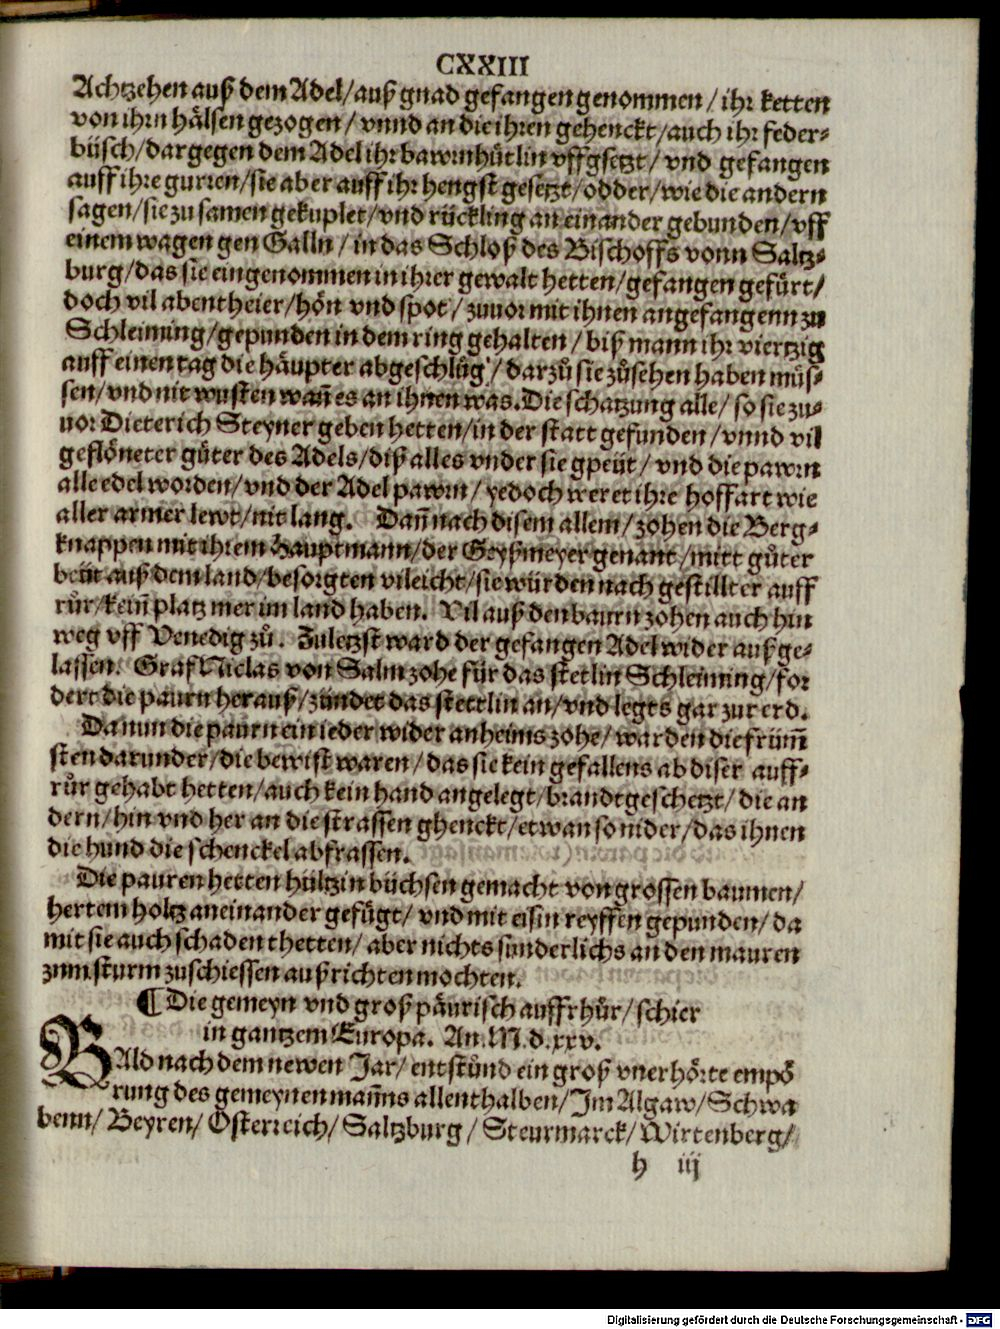 CXXIII
Achtzehen auß dem Adel/auß gnad gefangen genommen/ ihr ketten
von ihrn hälsen gezogen/ vnnd an die ihren gehenckt/auch ihr feder-
büsch/dargegen dem Adel ihr bawrnhütlin vffgsetzt/ vnd gefangen
auff ihre gurren/sie aber auff ihr hengst gesetzt/odder/wie die andern
sagen/sie zu samen gekuplet/vnd rückling an einander gebunden/vff
einem wagen gen Galln/in das Schloß des Bischoffs vonn Saltz-
burg/das sie eingenommen in ihrer gewalt hetten/gefangen gefürt/
doch vil abentheier/hön vnd spot/ zuuor mit ihnen angefangenn zu
Schleiming/gepunden in dem ring gehalten/ biß mann ihr viertzig
auff einen tag die häupter abgeschlůg/ darzů sie zůsehen haben müs-
sen/vnd nit wusten wañ es an ihnen was. Die schatzung alle/ so sie zu-
uor Dieterich Steyner geben hetten/in der statt gefunden/vnnd vil
geflöneter güter des Adels/diß alles vnder sie gpeüt/ vnd die pawrn
alle edel worden/vnd der Adel pawrn/ yedoch weret ihre hoffart wie
aller armer lewt/nit lang. Dañ nach disem allem/zohen die Berg-
knappen mit ihrem Hauptmann/der Geyßmeyer genant/mitt gůter
beüt auß dem land/besorgten vileicht/sie würden nach gestillter auff
růr/keiñ platz mer im land haben. Vil auß den baurn zohen auch hin
weg vff Venedig zů. Zuletzst ward der gefangen Adel wider außge-
lassen. Graf Niclas von Salm zohe für das stetlin Schleiming/for
dert die paurn herauß/zündet das stettlin an/vnd legts gar zur erd.
Da nun die paurn ein ieder wider anheims zohe/ warden die frümm̄
sten darunder/die bewist waren/das sie kein gefallens ab diser auff-
růr gehabt hetten/auch kein hand angelegt/brandtgeschetzt/ die an
dern/hin vnd her an die strassen ghenckt/etwan so nider/das ihnen
die hund die schenckel abfrassen.
Die pauren hetten hültzin büchsen gemacht von grossen baumen/
hertem holtz aneinander gefügt/ vnd mit eisin reyffen gepunden/da
mit sie auch schaden thetten/ aber nichts sunderlichs an den mauren
zum sturm zuschiessen außrichten mochten.
¶ Die gemeyn vnd groß päurisch auffrhůr/schier
in gantzem Europa. An. M.d.xxv.
BAld nach dem newen Jar/ entstůnd ein groß vnerhörte empö
rung des gemeynen mañns allenthalben/Im Algaw/Schwa
benn/ Beyren/ Osterreich/ Saltzburg/ Steurmarck/ Wirtenberg/
h iij
Digitalisierung gefördert durch die Deutsche Forschungsgemeinschaft - DFG